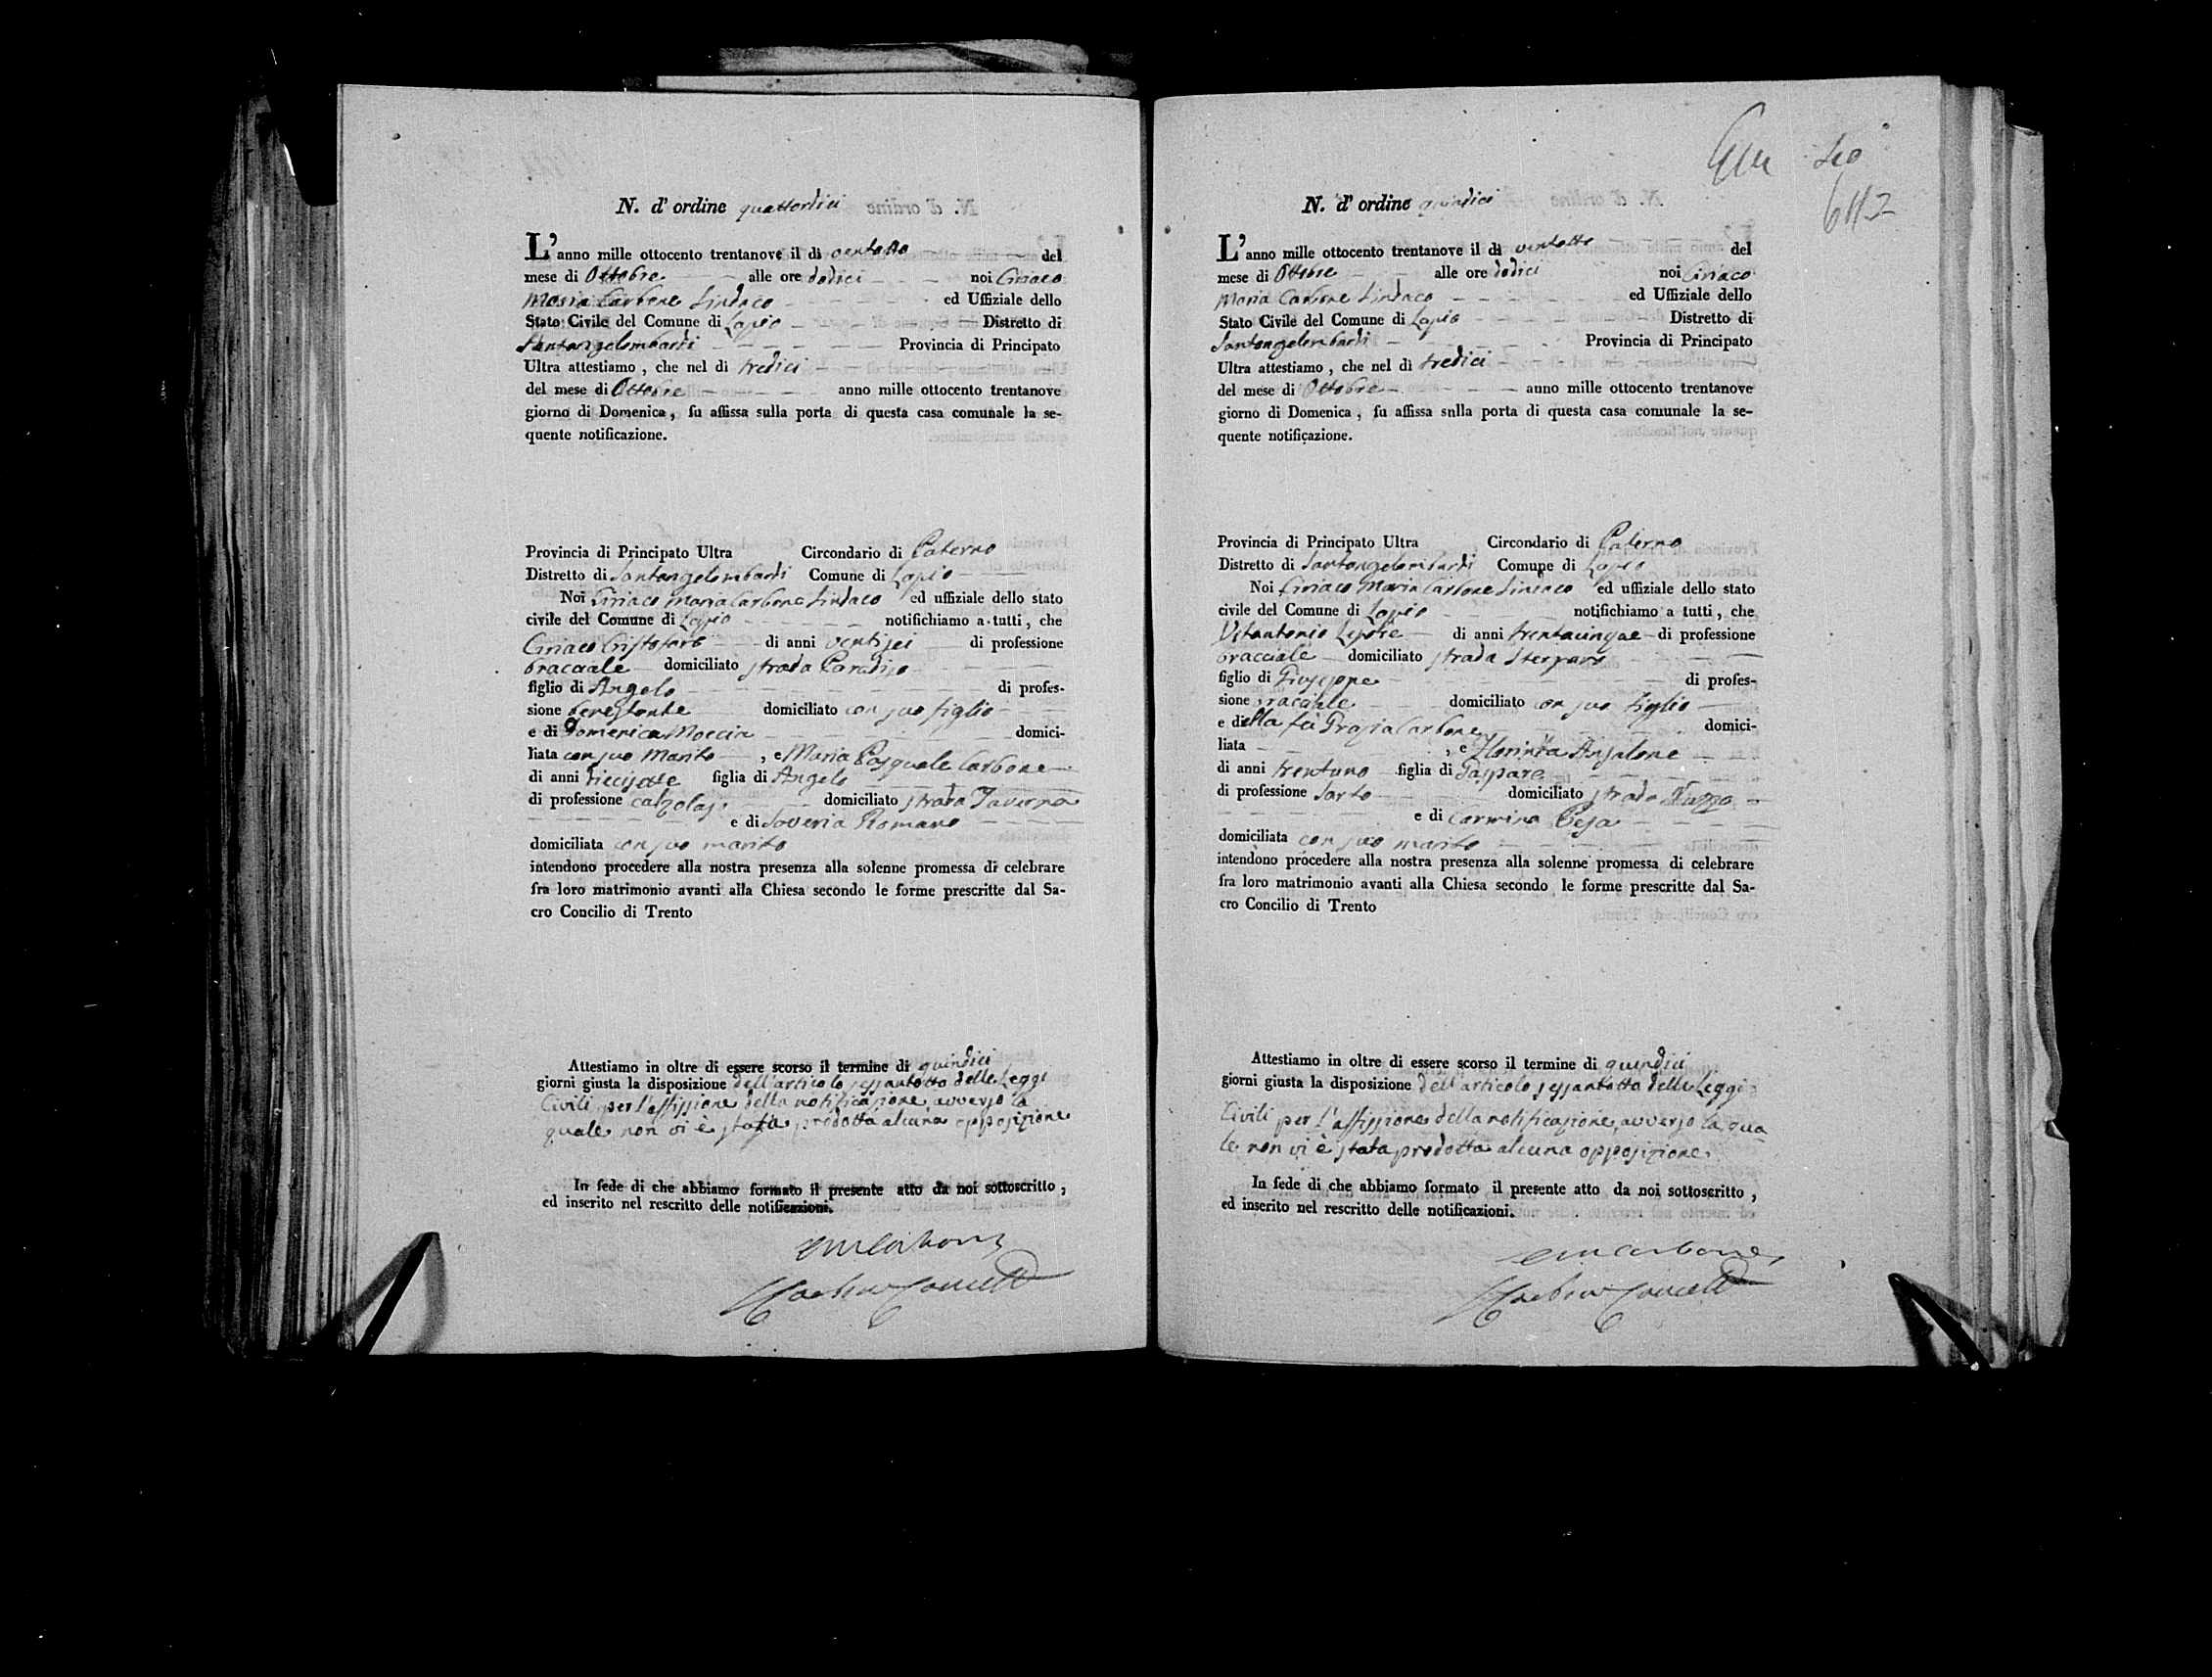 N. d' ordine quattordici
L'anno mille ottocento trentanove il dì ventotto del
mese di Ottobre alle ore dodici noi Ciriaco
Maria Carbone Sindaco ed Uffiziale dello
Stato Civile del Comune di Lapio Distretto di
Santangelombardi Provincia di Principato
Ultra attestiamo, che nel dì tredici
del mese di Ottobre anno mille ottocento trentanove
giorno di Domenica, fu affissa sulla porta di questa casa comunale la se-
quente notificazione.
Provincia di Principato Ultra Circondario di Paterno
Distretto di Santangelombardi Comune di Lapio
Noi Ciriaco Maria Carbone Sindaco ed uffiziale dello stato
civile del Comune di Lapio notifichiamo a tutti, che
Ciriaco Cristofaro di anni ventisei di professione
bracciale domiciliato strada Paradiso
figlio di Angelo di profes-
sione benestante domiciliato con suo figlio
e di Domenica Moccia domici-
liata con suo marito, e Maria Pasquale Carbone
di anni diecisette figlia di Angelo
di professione calzolajo domiciliato strada Taverna
e di Saveria Romano
domiciliata con suo marito
intendono procedere alla nostra presenza alla solenne promessa di celebrare
fra loro matrimonio avanti alla Chiesa secondo le forme prescritte dal Sa-
cro Concilio di Trento
Attestiamo in oltre di essere scorso il termine di quindici
giorni giusta la disposizione dell'articolo sessantotto delle Leggi
Civili per l'affissione della notificazione avverso la
quale non vi è stata prodotta alcuna opposizione
In fede di che abbiamo formato il presente atto da noi sottoscritto,
ed inserito nel rescritto delle notificazioni.
CMCarbone
N. d' ordine quindici
6112
L'anno mille ottocento trentanove il dì ventotto del
mese di Ottobre alle ore dodici noi Ciriaco
Maria Carbone Sindaco ed Uffiziale dello
Stato Civile del Comune di Lapio Distretto di
Santangelombardi Provincia di Principato
Ultra attestiamo, che nel dì tredici
del mese di Ottobre anno mille ottocento trentanove
giorno di Domenica, fu affissa snlla porta di questa casa comunale la se-
quente notificazione.
Provincia di Principato Ultra Circondario di Paterno
Distretto di Santangelombardi Comune di Lapio
Noi Ciriaco Maria Carbone Sindaco ed uffiziale dello stato
civile del Comune di Lapio notifichiamo a tutti, che
Vitantonio Lepore di anni trentacinque di professione
bracciale domiciliato strada
figlio di Giuseppe di profes-
sione bracciale domiciliato con suo figlio
e della fu Grazia Carbone domici-
liata, e Florinda Anzalone
di anni trentuno figlia di Gaspare
di professione Sarto domiciliato strada
e di Carmina Pesa
domiciliata con suo marito
intendono procedere alla nostra presenza alla solenne promessa di celebrare
fra loro matrimonio avanti alla Chiesa secondo le forme prescritte dal Sa-
cro Concilio di Trento
Attestiamo in oltre di essere scorso il termine di quindici
giorni giusta la disposizione dell'articolo sessantotto delle Leggi
Civili per l'affissione della notificazione, avverso la qua
le non vi è stata prodotta alcuna opposizione
In fede di che abbiamo formato il presente atto da noi sottoscritto,
ed inserito nel rescritto delle notificazioni.
CMCarbone